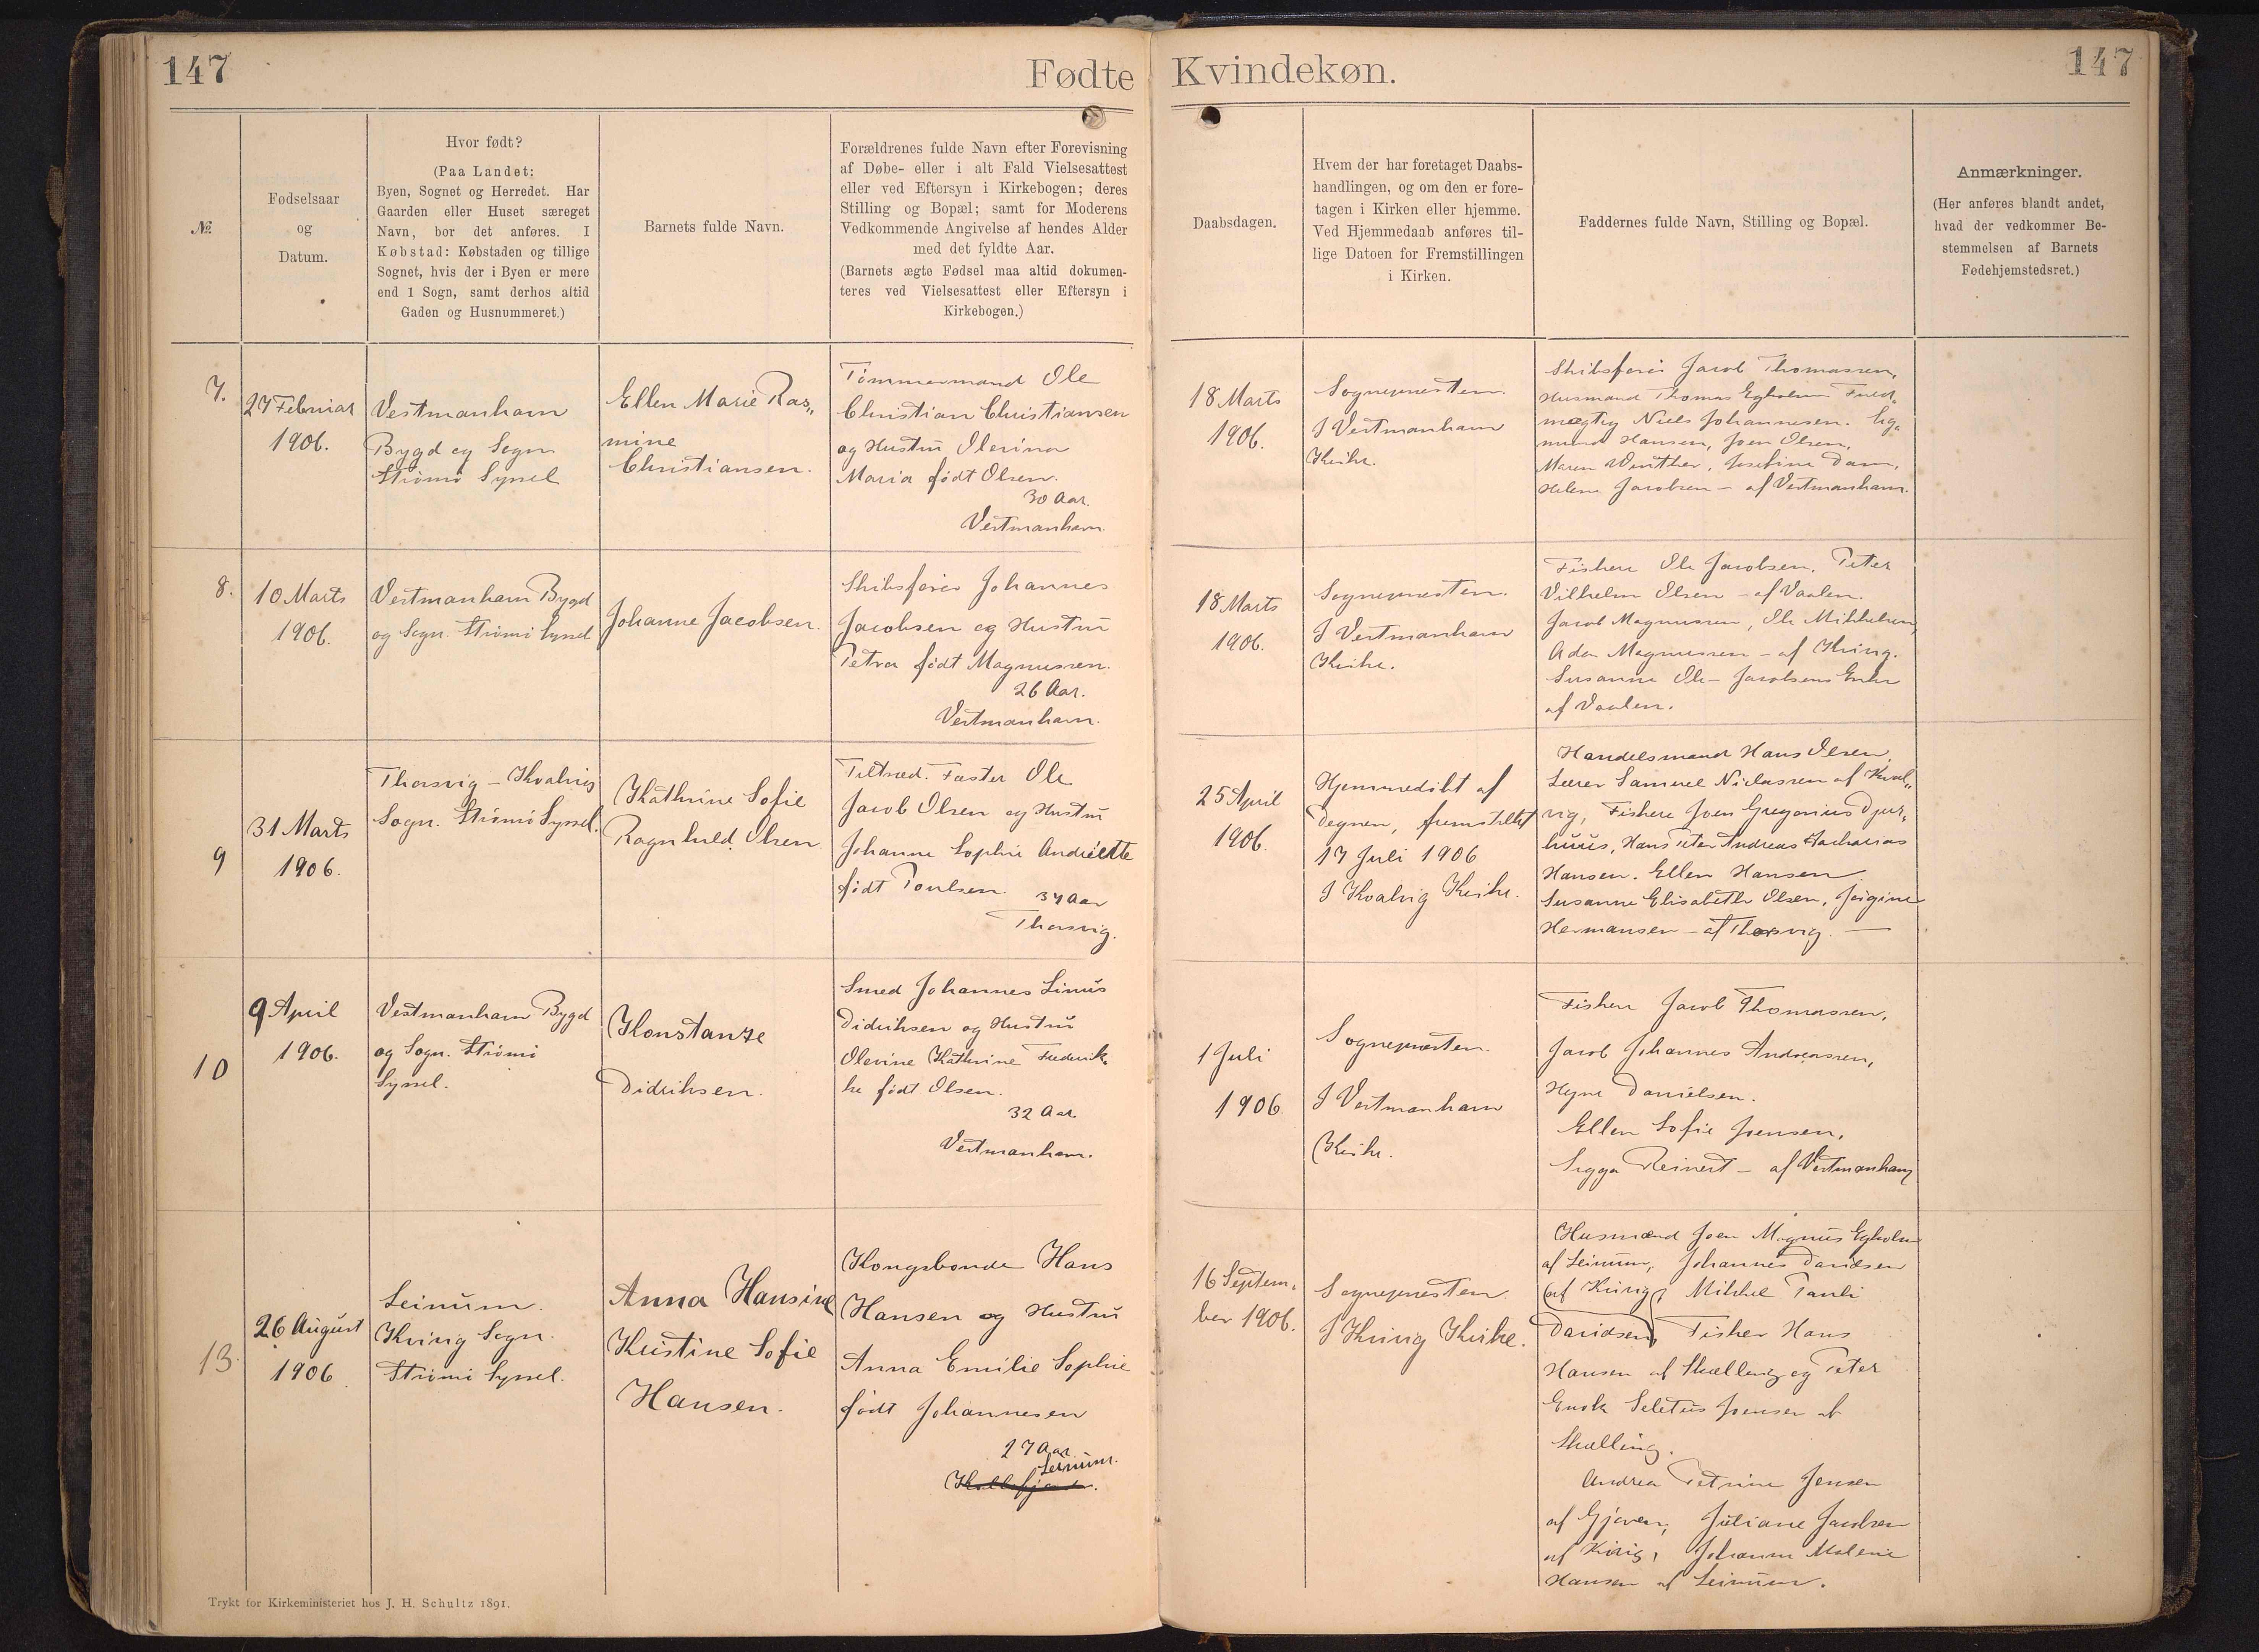 147
Fødte
Kvindekøn.
147
№
Fødselsaar
og
Datum.
Hvor født?
(Paa Landet:
Byen, Sognet og Herredet. Har
Gaarden eller Huset særeget
Navn, bør det anføres. I
Købstad: Købstaden og tillige
Sognet, hvis der i Byen er mere
end 1 Sogn, samt derhos altid
Gaden og Husnummeret.)
Barnets fulde Navn.
Forældrenes fulde Navn efter Forevisning
af Døbe- eller i alt Fald Vielsesattest
eller ved Eftersyn i Kirkebogen; deres
Stilling og Bopæl; samt for Moderens
Vedkommende Angivelse af hendes Alder
med det fyldte Aar.
(Barnets ægte Fødsel maa altid dokumen-
teres ved Vielsesattest eller Eftersyn i
Kirkebogen.)
Daabsdagen.
Hvem der har foretaget Daabs-
handlingen, og om den er fore-
tagen i Kirken eller hjemme.
Ved Hjemmedaab anføres til-
lige Datoen for Fremstillingen
i Kirken.
Faddernes fulde Navn, Stilling og Bopæl.
Anmærkninger.
(Her anføres blandt andet,
hvad der vedkommer Be-
stemmelsen af Barnets
Fødehjemstedsret.)
7.
27 Februar
1906.
Vestmanhavn
Bygd og Sogn
Strømø Syssel
Ellen Marie Ras„
mine
Christiansen.
Tømmermand Ole
Christian Christiansen
og Hustru Olevina
Maria født Olsen.
30 Aar.
Vestmanhavn.
18 Marts
1906.
Sognepræsten.
I Vestmanhavn
Kirke.
Skibsfører Jacob Thomassen,
Husmand Thomas Egholm Fuld„
mægtig Niels Johannesen. Sig„
mund Hansen, Joen Olsen,
Maren Winther, Josefine Dam,
Helene Jacobsen – af Vestmanhavn.
8.
10 Marts
1906.
Vestmanhavn Bygd
og Sogn. Strømø Syssel
Johanne Jacobsen.
Skibsfører Johannes
Jacobsen og Hustru
Petra født Magnussen.
26 Aar.
Vestmanhavn.
18 Marts
1906.
Sognepræsten.
I Vestmanhavn
Kirke.
Fiskere Ole Jacobsen, Peter
Vilhelm Olsen – af Vaalen.
Jacob Magnussen, Ole Mikkelsen,
Ada Magnussen – af Kvivig.
Susanne Ole – Jacobsens Enke
af Vaalen.
9
31 Marts
1906.
Thorsvig – Kvalvig
Sogn. Strømø Syssel.
Kathrine Sofie
Ragnhild Olsen
Tiltræd. Fæster Ole
Jacob Olsen og Hustru
Johanne Sophie Andriette
født Poulsen.
37 Aar
Thorsvig.
25 April
1906.
Hjemmedøbt af
Degnen, fremstillet
17 Juli 1906
I Kvalvig Kirke.
Handelsmand Hans Olsen,
Lærer Samuel Niclassen af Kval„
vig, Fiskere Joen Gregorius Djur„
huus, Hans Peter Andreas Zacharias
Hansen. Ellen Hansen
Susanne Elisabeth Olsen, Jøgine
Hermansen – af Thorsvig. —
10
9 April
1906.
Vestmanhavn Bygd
og Sogn. Strømø
Syssel.
Konstanze
Didriksen.
Smed Johannes Linus
Didriksen og Hustru
Olevine Kathrine Frederik
ke født Olsen.
32 Aar.
Vestmanhavn.
1 Juli
1906.
Sognepræsten.
I Vestmanhavn
Kirke.
Fisker Jacob Thomassen,
Jacob Johannes Andreassen,
Danielsen.
Ellen Sofie Joensen,
Sigga Reinert – af Vestmanhavn
13.
26 August
1906
Leinum.
Kvivig Sogn.
Strømø Syssel.
Anna Hansine
Kristine Sofie
Hansen.
Kongsbonde Hans
Hansen og Hustru
Anna Emilie Sophie
født Johannesen
27 Aar
Leinum.
Kollefjord.
16 Septem„
ber 1906.
Sognepræsten
I Kvivig Kirke.
Husmænd Joen Magnus Egholm
af Leinum, Johannes Davidsen
(af Kvivig, Mikkel Pauli
Davidsen) Fisker Hans
Hansen af Skælling og Peter
Enok Seletus Joensen af
Skælling.
Andrea Petrine Jensen
af Gjoven, Juliane Jacobsen
af Kvivig, Johanne Malene
Hansen af Leinum.
Trykt for Kirkeministeriet hos J. H. Schultz 1891.